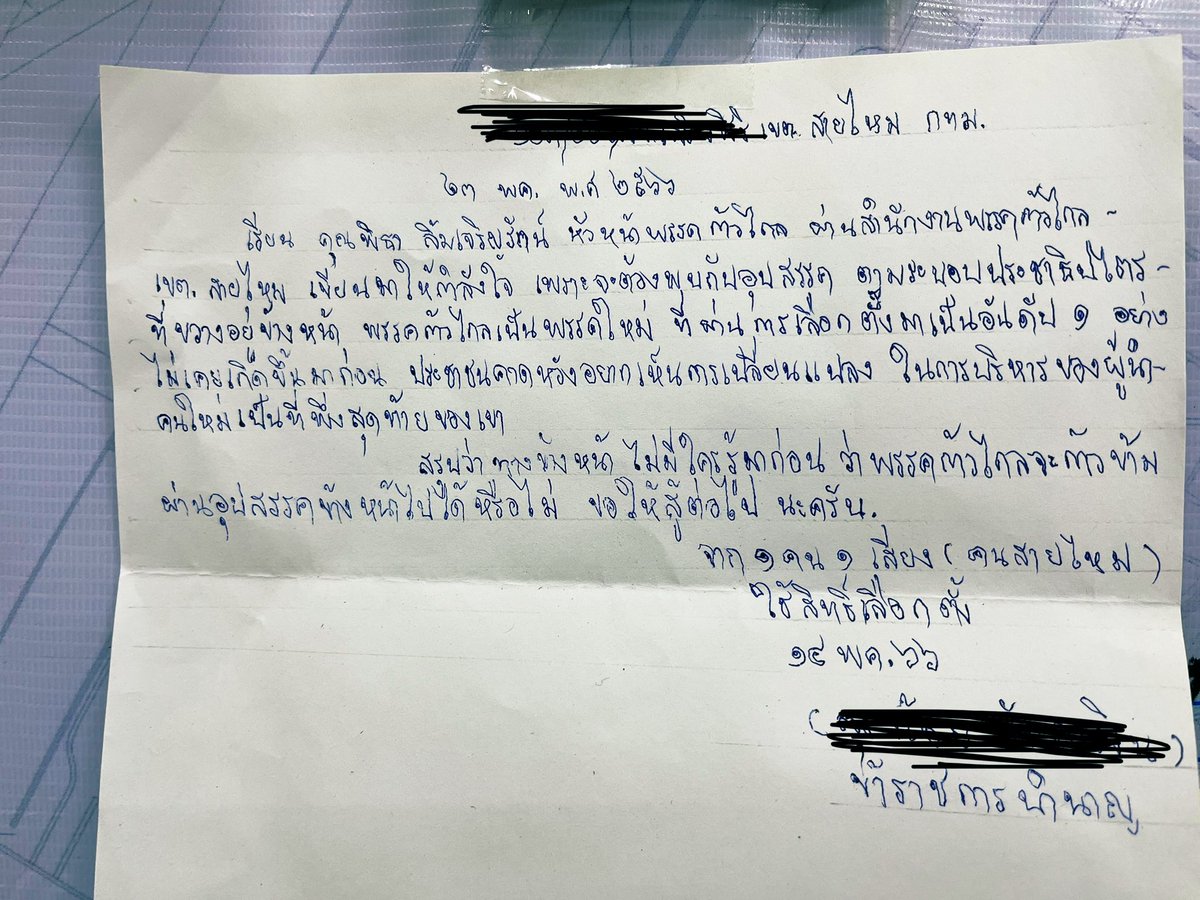 เขต. สายไหม กทม.
๒๓ พค. พ.ศ ๒๕๖๖
เรียน คุณพิธา ลิ้มเจริญรัตน์ หัวหน้าพรรคก้าวไกล ผ่านสำนักงานพรรคก้าวไกล -
เขต. สายไหม เขียนมาให้กำลังใจ เพราะจะต้องพบกับอุปสรรค ตามระบอบประชาธิปไตร -
ที่ขวางอยู่ข้างหน้า พรรคก้าวไกลเป็นพรรคใหม่ ที่ผ่านการเลือกตั้งมาเป็นอันดับ ๑ อย่าง
ไม่เคยเกิดขึ้นมาก่อน ประชาชนคาดหวังอยากเห็นการเปลี่ยนแปลง ในการบริหารของผู้นำ -
คนใหม่เป็นที่พึ่งสุดท้ายของเขา
สรุปว่าทางข้างหน้า ไม่มีใครรู้มาก่อน ว่าพรรคก้าวไกลจะก้าวข้าม
ผ่านอุปสรรคข้างหน้าไปได้หรือไม่ ขอให้สู้ต่อไป นะครับ.
จาก ๑ คน ๑ เสียง (คนสายไหม)
ใช้สิทธิ์เลือกตั้ง
๑๔ พค. ๖๖
ข้าราชการบำนาญ